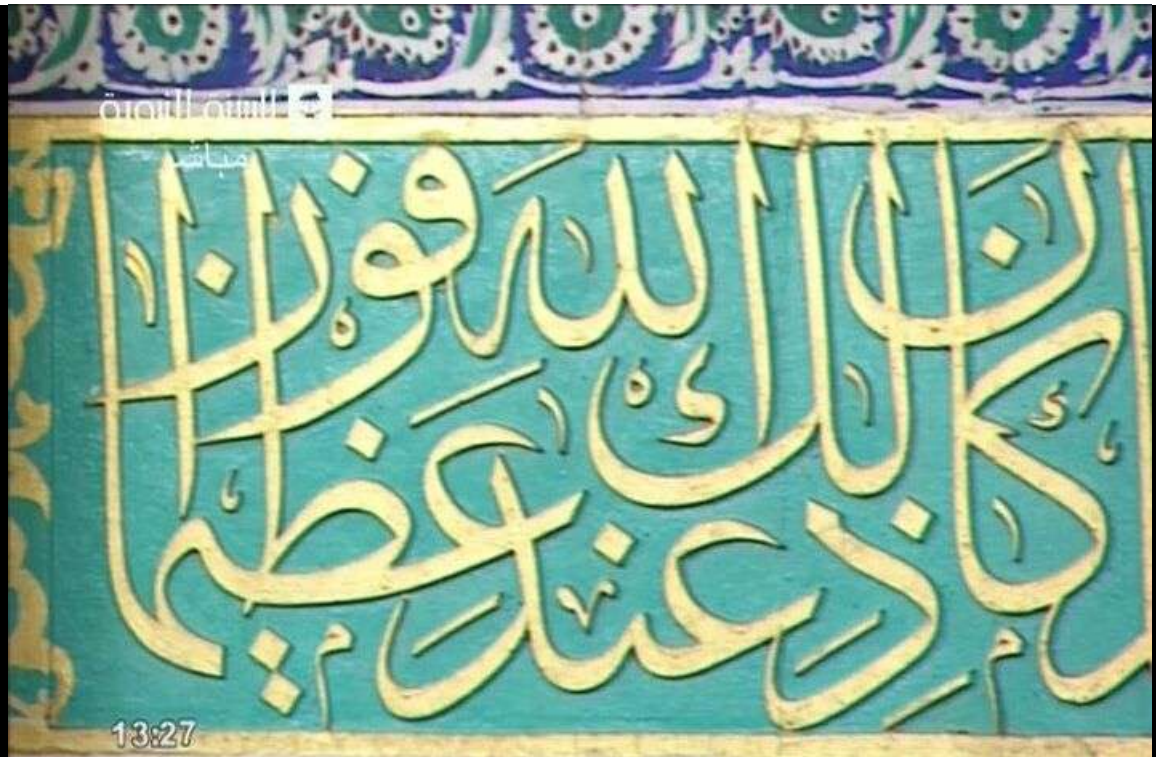 السنة النبوية
مباشر
كَانَ ذَلِكَ عِنْدَ اللهِ فَوْزًا عَظِيمًا
13:27